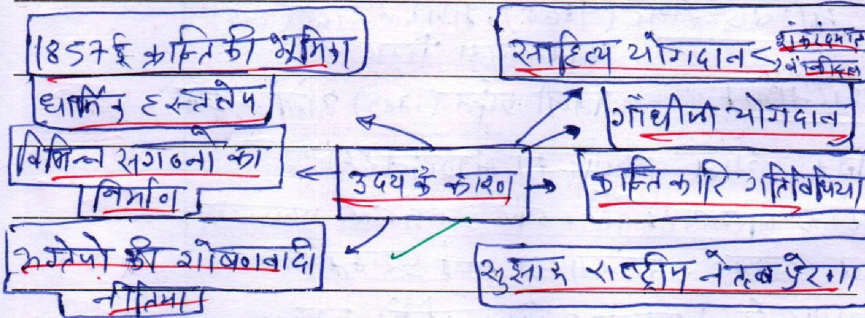 1857 ई क्रान्ति की भूमिका
धार्मिक हस्तक्षेप
विभिन्न सगठनो का
निर्माण
अंग्रेजो की शोषणवादी
नीतिया
उदय के कारण
साहित्य योगदान <
गाँधीजी योगदान
क्रान्तिकारि गतिविधिया
राष्ट्रीय नेतृत्व प्रेरणा